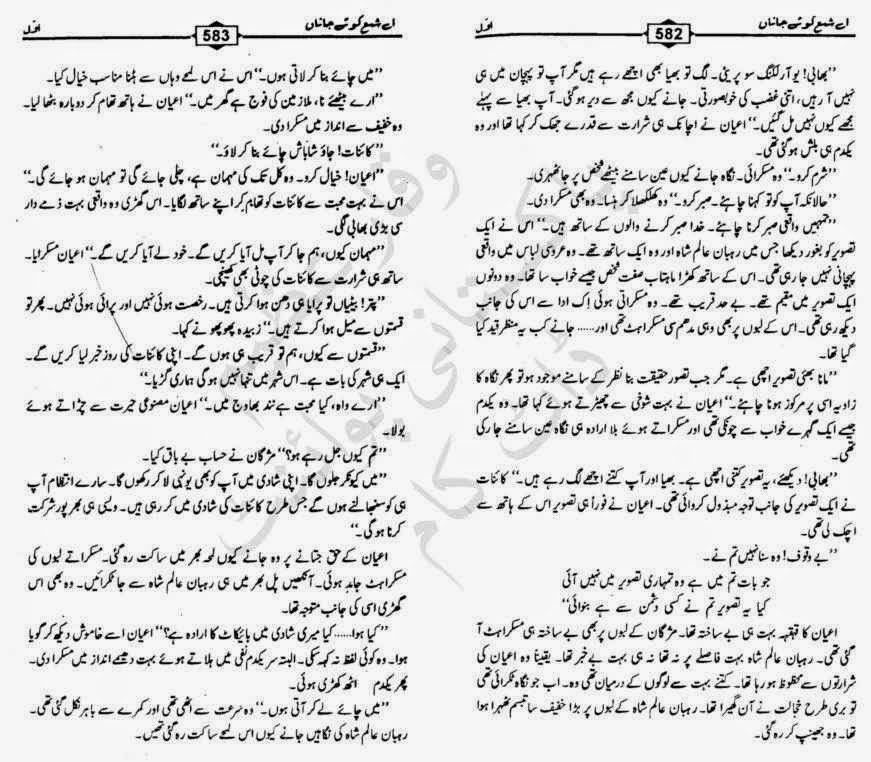 اے شمع کوئے جاناں
582
اوّل
"بھابی! یو آر لکنگ سو پریٹی۔ لگ تو بھیا بھی اچھے رہے ہیں مگر آپ تو پہچان میں ہی
نہیں آ رہیں، اتنی غضب کی خوبصورتی۔ جانے کیوں مجھ سے دیر ہو گئی۔ آپ بھیا سے پہلے
مجھے کیوں نہیں مل گئیں۔" اعیان نے اچانک ہی شرارت سے قدرے جھک کر کہا تھا اور وہ
یکدم ہی بلش ہو گئی تھی۔
"شرم کرو۔" وہ مسکرائی۔ نگاہ جانے کیوں عین سامنے بیٹھے شخص پر جا ٹھہری۔
"حالانکہ آپ کو تو کہنا چاہئے۔ صبر کرو۔" وہ کھلکھلا کر ہنسا۔ وہ بھی مسکرا دی۔
"تمہیں واقعی صبر کرنا چاہئے۔ خدا صبر کرنے والوں کے ساتھ ہیں۔" اس نے ایک
تصویر کو بغور دیکھا جس میں رہبان عالم شاہ اور وہ ایک ساتھ تھے۔ وہ عروسی لباس میں واقعی
پہچانی نہیں جا رہی تھی۔ اس کے ساتھ کھڑا ماہتاب صفت شخص جیسے خواب سا تھا۔ وہ دونوں
ایک تصویر میں مقیم تھے۔ بے حد قریب تھے۔ وہ مسکراتی ہوئی اک ادا سے اس کی جانب
دیکھ رہی تھی۔ اس کے لبوں پر بھی وہی مدھم سی مسکراہٹ تھی اور...... جانے کب یہ منظر قید کیا
گیا تھا۔
"مانا بھئی تصویر اچھی ہے۔ مگر جب تصور حقیقت بنا نظر کے سامنے موجود ہو تو پھر نگاہ کا
زاویہ اسی پر مرکوز ہونا چاہئے۔" اعیان نے بہت شوخی سے چھیڑتے ہوئے کہا تھا۔ وہ یکدم
جیسے ایک گہرے خواب سے چونکی تھی اور مسکراتے ہوئے بلا ارادہ ہی نگاہ عین سامنے جا رکی
تھی۔
"بھابی! دیکھئے، یہ تصویر کتنی اچھی ہے۔ بھیا اور آپ کتنے اچھے لگ رہے ہیں۔" کائنات
نے ایک تصویر کی جانب توجہ مبذول کروائی تھی۔ اعیان نے فوراً ہی تصویر اس کے ہاتھ سے
اچک لی تھی۔
"بے وقوف! وہ سنا نہیں تم نے۔
جو بات تم میں ہے وہ تمہاری تصویر میں نہیں آئی
کیا یہ تصویر تم نے کسی دشمن سے ہے بنوائی"
اعیان کا قہقہہ بہت ہی بے ساختہ تھا۔ مژگان کے لبوں پر بھی بے ساختہ ہی مسکراہٹ آ
گئی تھی۔ رہبان عالم شاہ بہت فاصلے پر نہ تھا نہ ہی بہت بے خبر تھا۔ یقیناً وہ اعیان کی
شرارتوں سے محظوظ ہو رہا تھا۔ کتنے بہت سے لوگوں کے درمیان تھی وہ۔ اب جو نگاہ ٹکرائی تھی
تو بری طرح خجالت نے آن گھیرا تھا۔ رہبان عالم شاہ کے لبوں پر بڑا خفیف سا تبسم ٹھہرا ہوا
تھا۔ وہ جھینپ کر رہ گئی۔
اے شمع کوئے جاناں
583
اوّل
"میں چائے بنا کر لاتی ہوں۔" اس نے اس لمحے وہاں سے ہٹنا مناسب خیال کیا۔
"ارے بیٹھئے نا، ملازمین کی فوج ہے گھر میں۔" اعیان نے ہاتھ تھام کر دوبارہ بٹھا لیا۔
وہ خفیف سے انداز میں مسکرا دی۔
"کائنات! جاؤ شاباش چائے بنا کر لاؤ۔"
"اعیان! خیال کرو۔ وہ کل تک کی مہمان ہے، چلی جائے گی تو مہمان ہو جائے گی۔"
اس نے بہت محبت سے کائنات کو تھام کر اپنے ساتھ لگایا۔ اس گھڑی وہ واقعی بہت ذمے دار
سی بڑی بھابی لگی۔
"مہمان کیوں، ہم جا کر آپ مل آیا کریں گے۔ خود لے آیا کریں گے۔" اعیان مسکرایا۔
ساتھ ہی شرارت سے کائنات کی چوٹی بھی کھینچی۔
"پتر! بیٹیاں تو پرایا ہی دھن ہوا کرتی ہیں۔ رخصت ہوئی نہیں اور پرائی ہوئی نہیں۔ پھر تو
قسمتوں سے میل ہوا کرتے ہیں۔" زبیدہ پھوپھو نے کہا۔
"قسمتوں سے کیوں، ہم تو قریب ہی ہوں گے۔ اپنی کائنات کی روز خبر لیا کریں گے۔
ایک ہی شہر کی بات ہے۔ اس شہر میں تنہا نہیں ہو گی ہماری گڑیا۔"
"ارے واہ، کیا محبت ہے نند بھاوج میں۔" اعیان مصنوعی حیرت سے چڑاتے ہوئے
بولا۔
"تم کیوں جل رہے ہو؟" مژگان نے حساب بے باق کیا۔
"میں کیونکر جلوں گا۔ اپنی شادی میں آپ کو بھی یونہی لا کر رکھوں گا۔ سارے انتظام آپ
ہی کو سنبھالنے ہوں گے جس طرح کائنات کی شادی میں کر رہی ہیں۔ ویسی ہی بھرپور شرکت
کرنا ہو گی۔"
اعیان کے حق جتانے پر وہ جانے کیوں لمحہ بھر میں ساکت رہ گئی۔ مسکراتے لبوں کی
مسکراہٹ جامد ہوئی۔ آنکھیں پل بھر میں ہی رہبان عالم شاہ سے جا ٹکرائیں۔ وہ بھی اس
گھڑی اسی کی جانب متوجہ تھا۔
"کیا ہوا...... کیا میری شادی میں بائیکاٹ کا ارادہ ہے؟" اعیان اسے خاموش دیکھ کر گویا
ہوا۔ وہ کوئی لفظ نہ کہہ سکی۔ البتہ سر یکدم نفی میں ہلاتے ہوئے بہت دھیمے انداز میں مسکرا دی۔
پھر یکدم اٹھ کھڑی ہوئی۔
"میں چائے لے کر آتی ہوں۔" وہ سرعت سے اٹھی تھی اور کمرے سے باہر نکل گئی تھی۔
رہبان عالم شاہ کی نگاہیں جانے کیوں اس لمحے ساکت رہ گئی تھیں۔